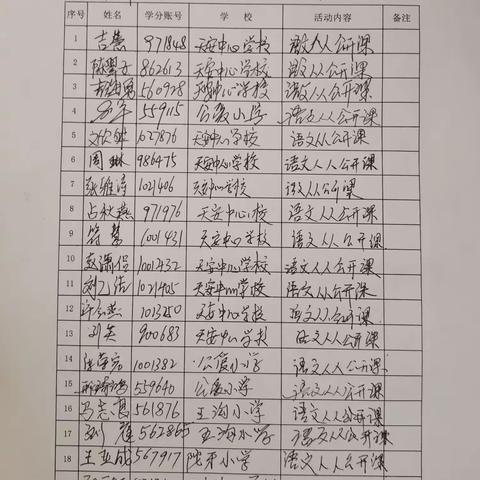 序号 姓名 学分账号 学 校 活动内容 备注
1 吉慧 971848 天安中心学校 语文人人公开课
2 862613 天安中心学校 语文人人公开课
3 560928 天安中心学校 语文人人公开课
4 559115 公爱小学 语文人人公开课
5 1027876 天安中心学校 语文人人公开课
6 周琳 986475 天安中心学校 语文人人公开课
7 张维诗 1021406 天安中心学校 语文人人公开课
8 占秋燕 971976 天安中心校 语文人人公开课
9 符慧 1001431 天安中心学校 语文人人公开课
10 1001432 天安中心学校 语文人人公开课
11 1021405 天安中心学校 语文人人公开课
12 1013250 天安中心学校 语文人人公开课
13 刘英 900683 天安中心学校 语文人人公开课
14 1001382 公爱小学 语文人人公开课
15 559640 公爱小学 语文人人公开课
16 561876 王沟小学 语文人人公开课
17 562865 王沟小学 语文人人公开课
18 王亚成 567917 陀牙小学 语文人人公开课